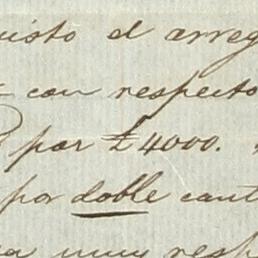 visto el arreg
con respecto
por £4000.
por doble cant
muy resp